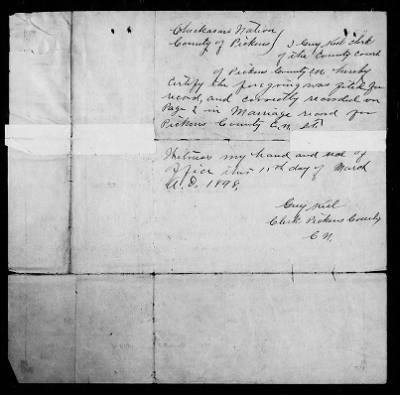 Chickasaw Nation
County of Pickens } I Guy Keel clerk
of the County court
of Pickens County C.N. hereby
certify the foregoing was filed for
record, and correctly recorded on
Page 2 in Marriage record for
Pickens County C.N. I.T.
Witness my hand and seal of
office this 11th day of March
A.D. 1898,
Guy Keel
Clerk Pickens County
C.N.